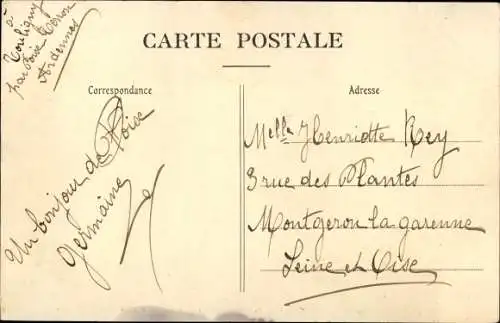 à
Touligny
par Poix Terron
Ardennes
CARTE POSTALE
Correspondance
Adresse
Un bonjour de Poix
Germaine
Melle Henriette Rey
3 rue des Plantes
Montgeron la garenne
Seine et Oise